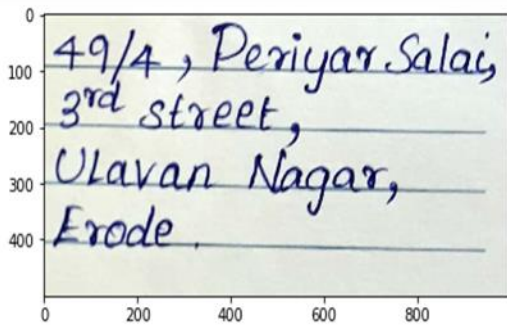 0
100
200
300
400
49/4, Periyar Salai,
3rd street,
Ulavan Nagar,
Erode.
0 200 400 600 800